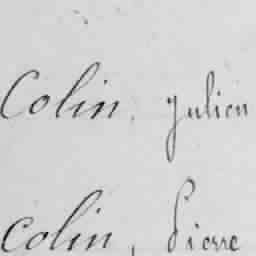 Colin, Julien
Colin, Pierre